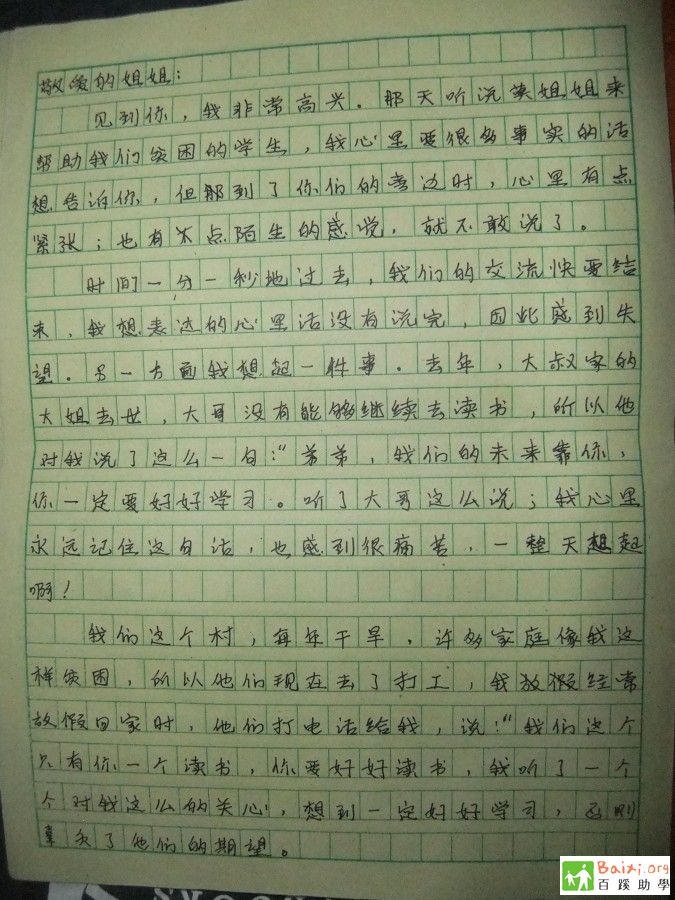 敬爱的姐姐：
见到你，我非常高兴。那天听说 姐姐来
帮助我们贫困的学生，我心里要很多事实的话
想告诉你，但那到了你们的 边时，心里有点
紧张；也有 点陌生的感觉，就不敢说了。
时间一分一秒地过去，我们的交流快要结
束，我想表达的心里话没有说完，因此感到失
望。另一方面我想起一件事。去年，大叔家的
大姐去世，大哥没有能够继续去读书，所以他
对我说了这么一句：“弟弟，我们的未来靠你，
你一定要好好学习。听了大哥这么说；我心里
永远记住这句话，也感到很痛苦，一整天想起
啊！
我们这个村，每年干旱，许多家庭像我这
样贫困，所以他们现在去了打工，我放假经常
放假回家时，他们打电话给我，说：“我们这个
只有你一个读书，你要好好读书，我听了一个
个对我这么的关心，想到一定好好学习，否则
辜负了他们的期望。
Baixi.org
百蹊助學